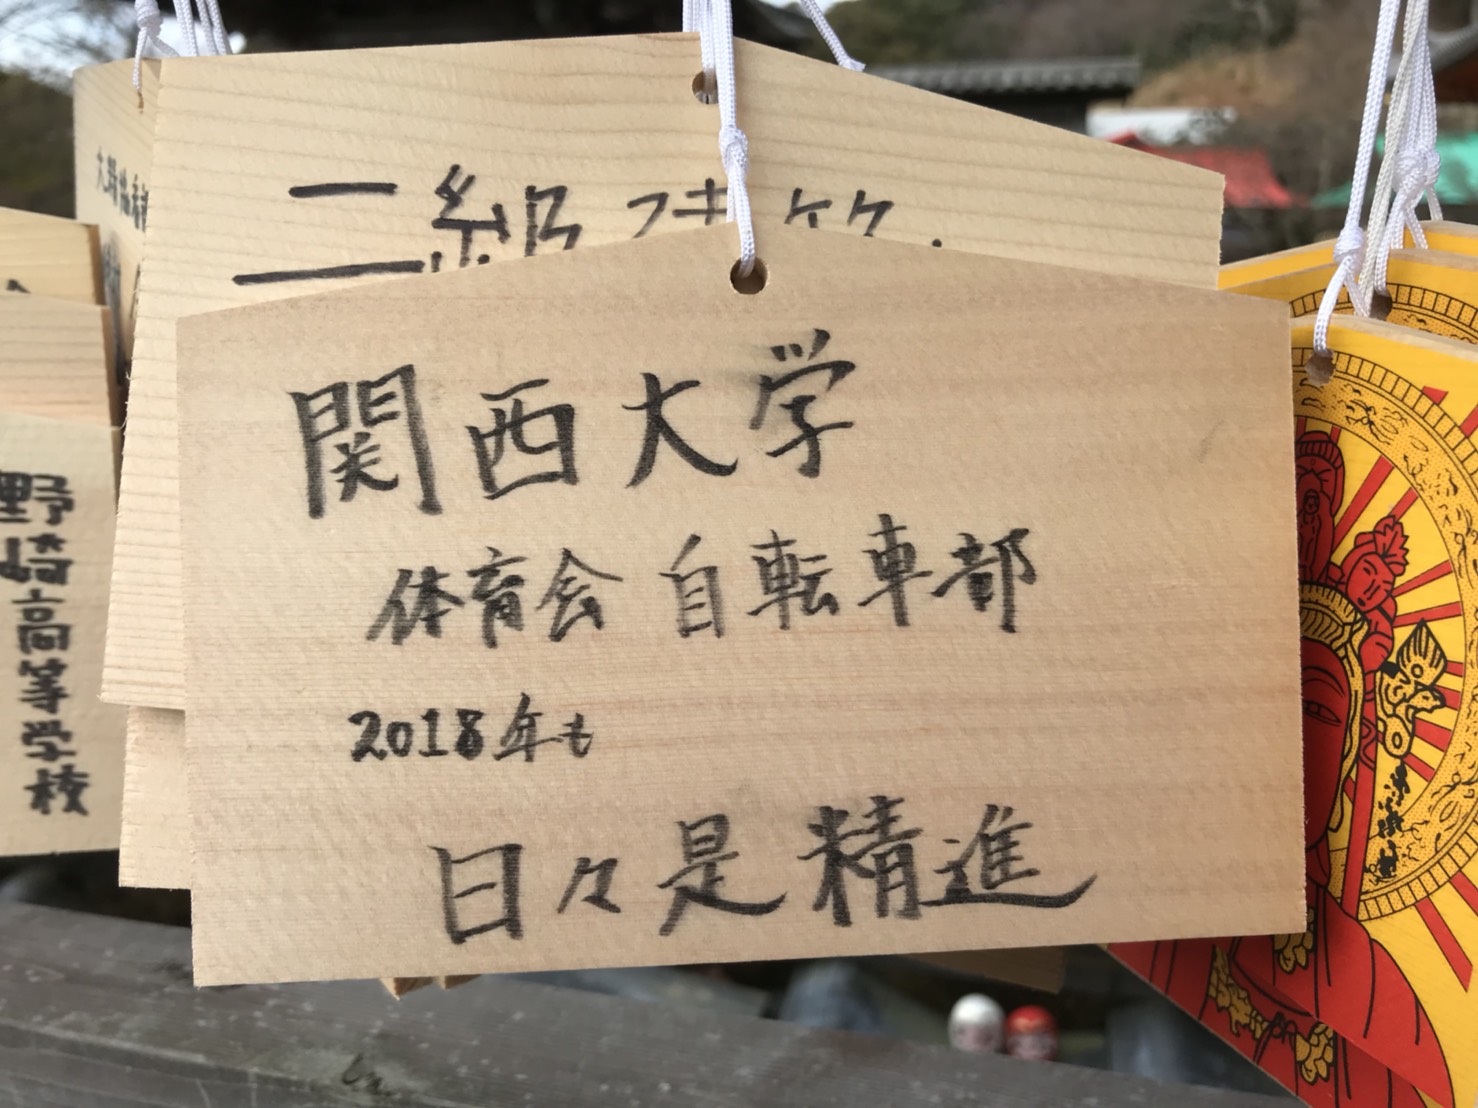 関西大学
体育会 自転車部
2018年も
日々是精進
二級建築
野崎高等学校